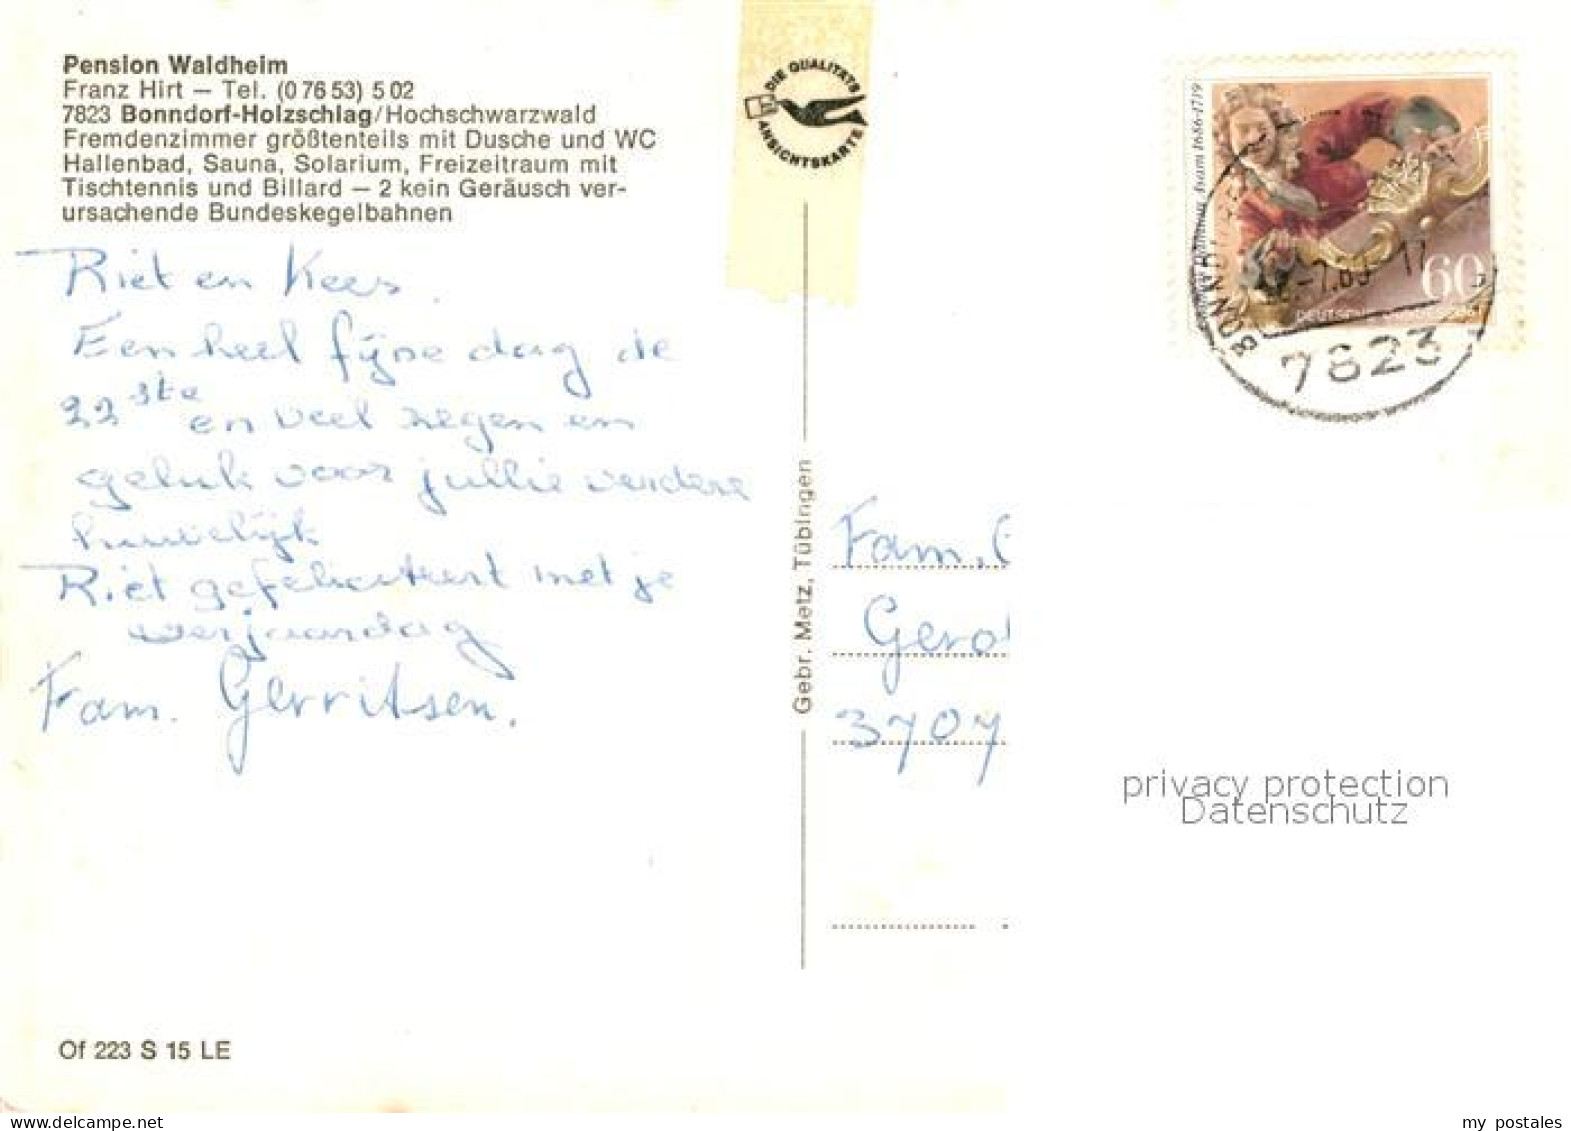 Pension Waldheim
Franz Hirt — Tel. (0 76 53) 5 02
7823 Bonndorf-Holzschlag/Hochschwarzwald
Fremdenzimmer größtenteils mit Dusche und WC
Hallenbad, Sauna, Solarium, Freizeitraum mit
Tischtennis und Billard — 2 kein Geräusch ver-
ursachende Bundeskegelbahnen
DIE QUALITÄTS
ANSICHTSKARTE
1686-1739
60
7823
Riet en Kees.
Een heel fijne dag de
22ste en veel zegen en
geluk voor jullie verdere
huwelijk
Riet gefeliciteert met je
verjaardag
Fam. Gerritsen.
Gebr. Metz, Tübingen
Fam.
3707
privacy protection
Datenschutz
Of 223 S 15 LE
my postales